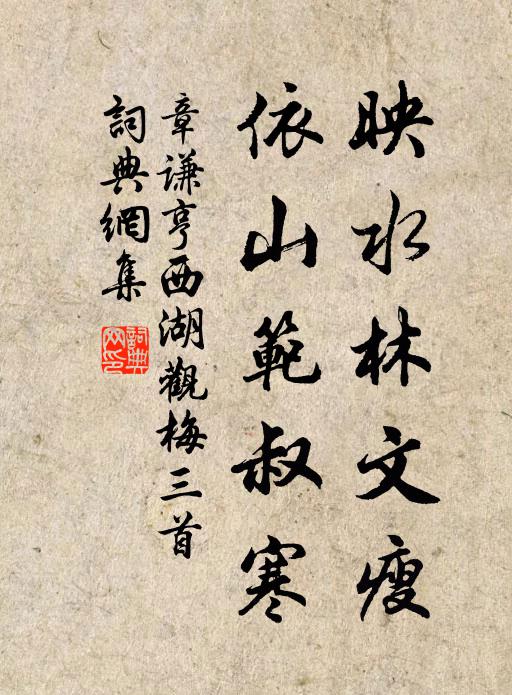 映水林文瘦
依山範叔寒
章谦亨西湖觀梅三首
詞典網集
詞典网印